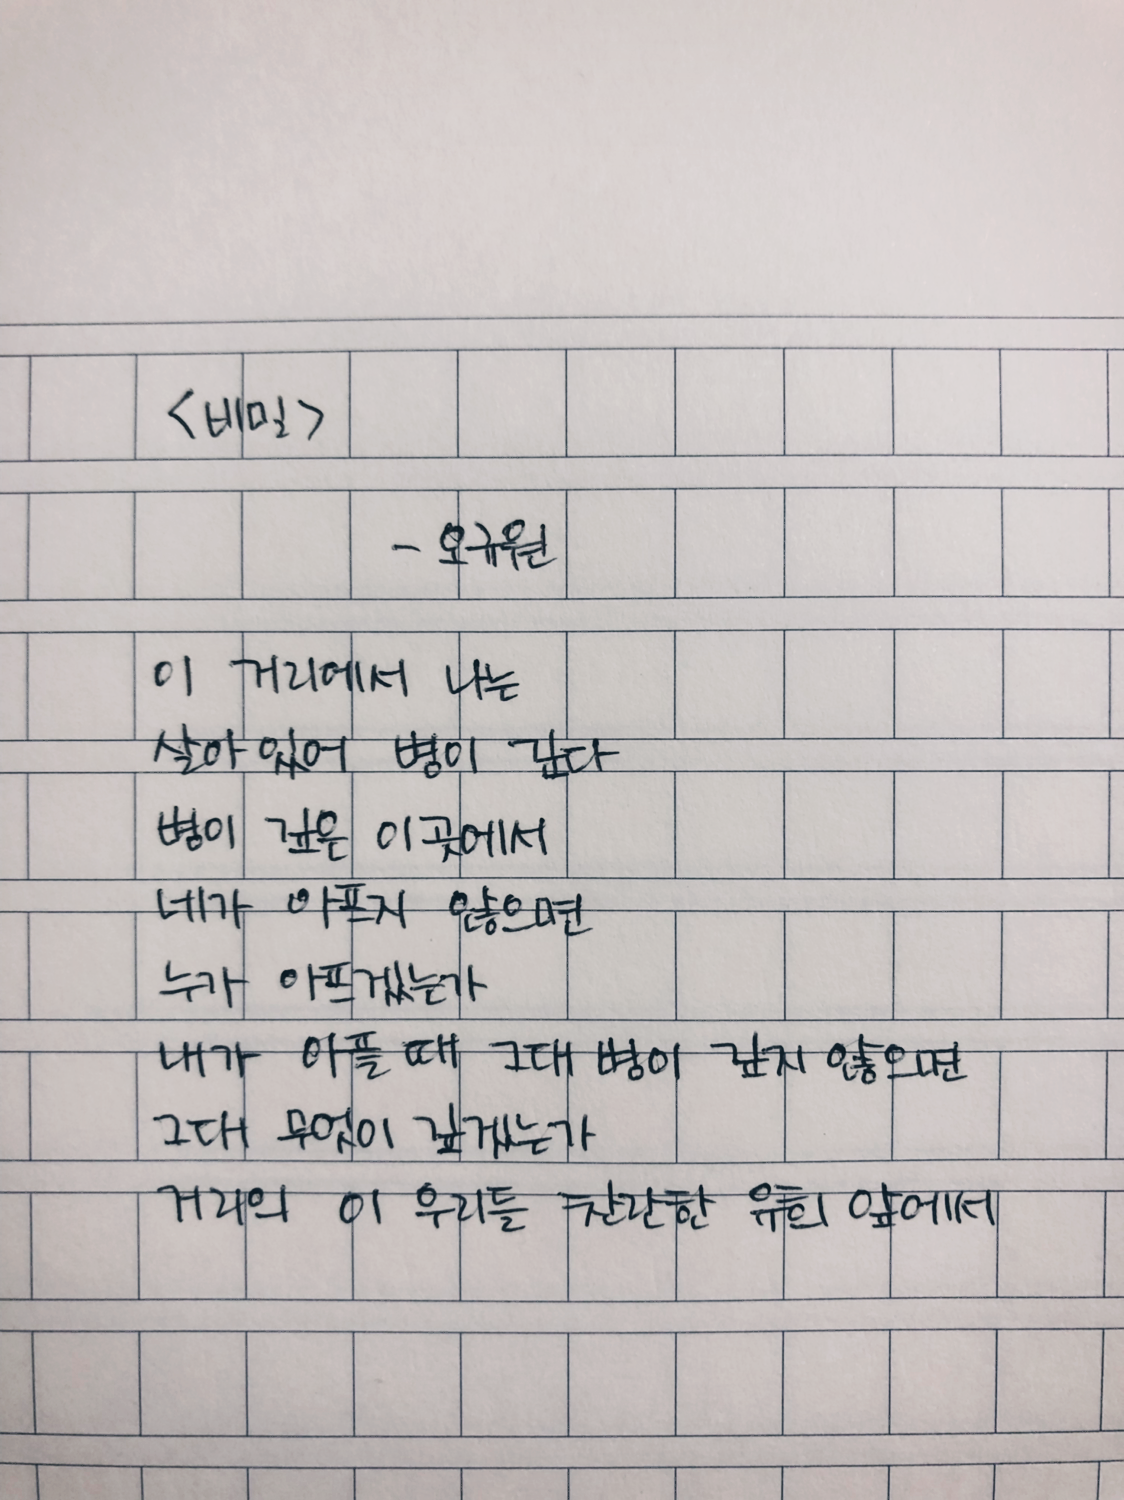 <비밀>
- 오규원
이 거리에서 나는
살아있어 병이 깊다
병이 깊은 이곳에서
네가 아프지 않으면
누가 아프겠는가
내가 아플 때 그대 병이 깊지 않으면
그대 무엇이 깊겠는가
거리의 이 우리들 찬란한 유희 앞에서